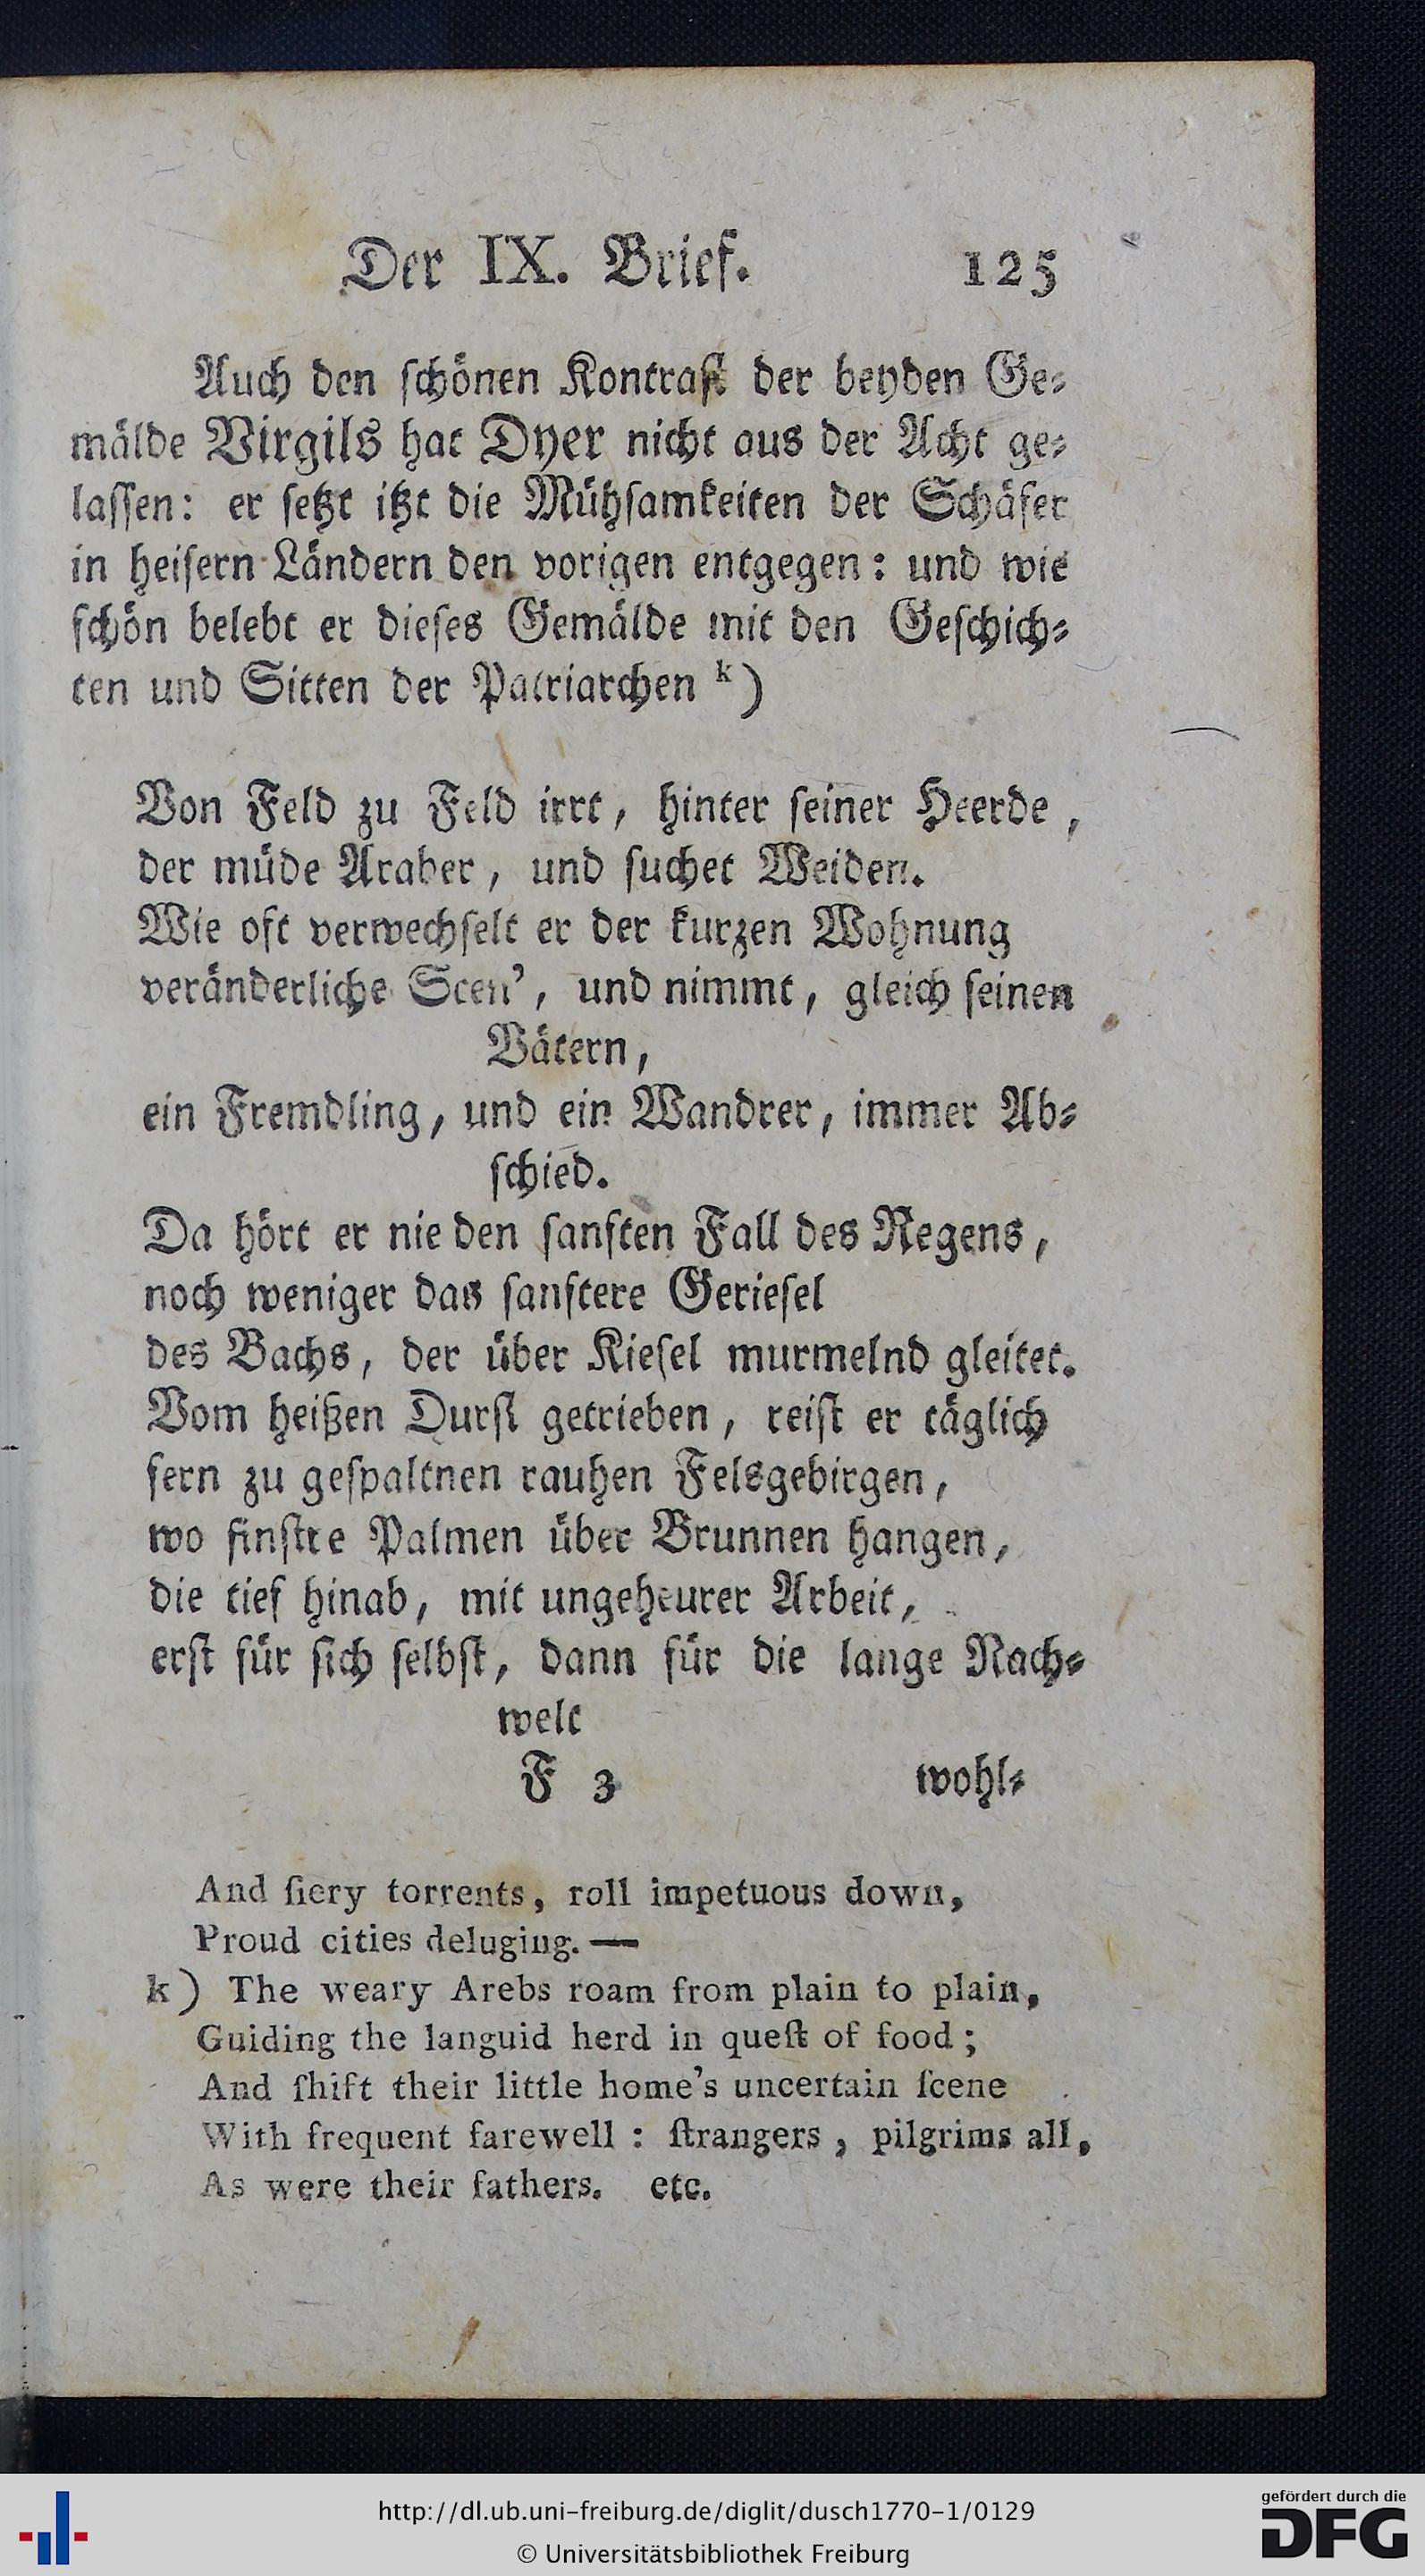 Der IX. Brief. 125
Auch den ſchönen Kontraſt der beyden Ge-
mälde Virgils hat Dyer nicht aus der Acht ge-
laſſen: er ſetzt itzt die Mühſamkeiten der Schäfer
in heiſern Ländern den vorigen entgegen: und wie
ſchön belebt er dieſes Gemälde mit den Geſchich-
ten und Sitten der Patriarchen k)
Von Feld zu Feld irrt, hinter ſeiner Heerde,
der müde Araber, und ſuchet Weiden.
Wie oft verwechſelt er der kurzen Wohnung
veränderliche Scen', und nimmt, gleich ſeinen
Vätern,
ein Fremdling, und ein Wandrer, immer Ab-
ſchied.
Da hört er nie den ſanften Fall des Regens,
noch weniger das ſanftere Gerieſel
des Bachs, der über Kieſel murmelnd gleitet.
Vom heißen Durſt getrieben, reiſt er täglich
fern zu geſpaltnen rauhen Felsgebirgen,
wo finſtre Palmen über Brunnen hangen,
die tief hinab, mit ungeheurer Arbeit,
erſt für ſich ſelbſt, dann für die lange Nach-
welt
F 3 wohl-
And fiery torrents, roll impetuous down,
Proud cities deluging. —
k) The weary Arebs roam from plain to plain,
Guiding the languid herd in queſt of food;
And ſhift their little home's uncertain ſcene
With frequent farewell: ſtrangers, pilgrims all,
As were their fathers. etc.
http://dl.ub.uni-freiburg.de/diglit/dusch1770-1/0129
© Universitätsbibliothek Freiburg
gefördert durch die
DFG